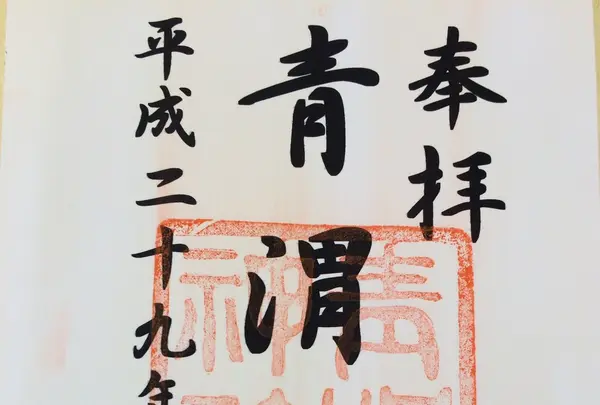 奉拝
青渭
平成二十九年